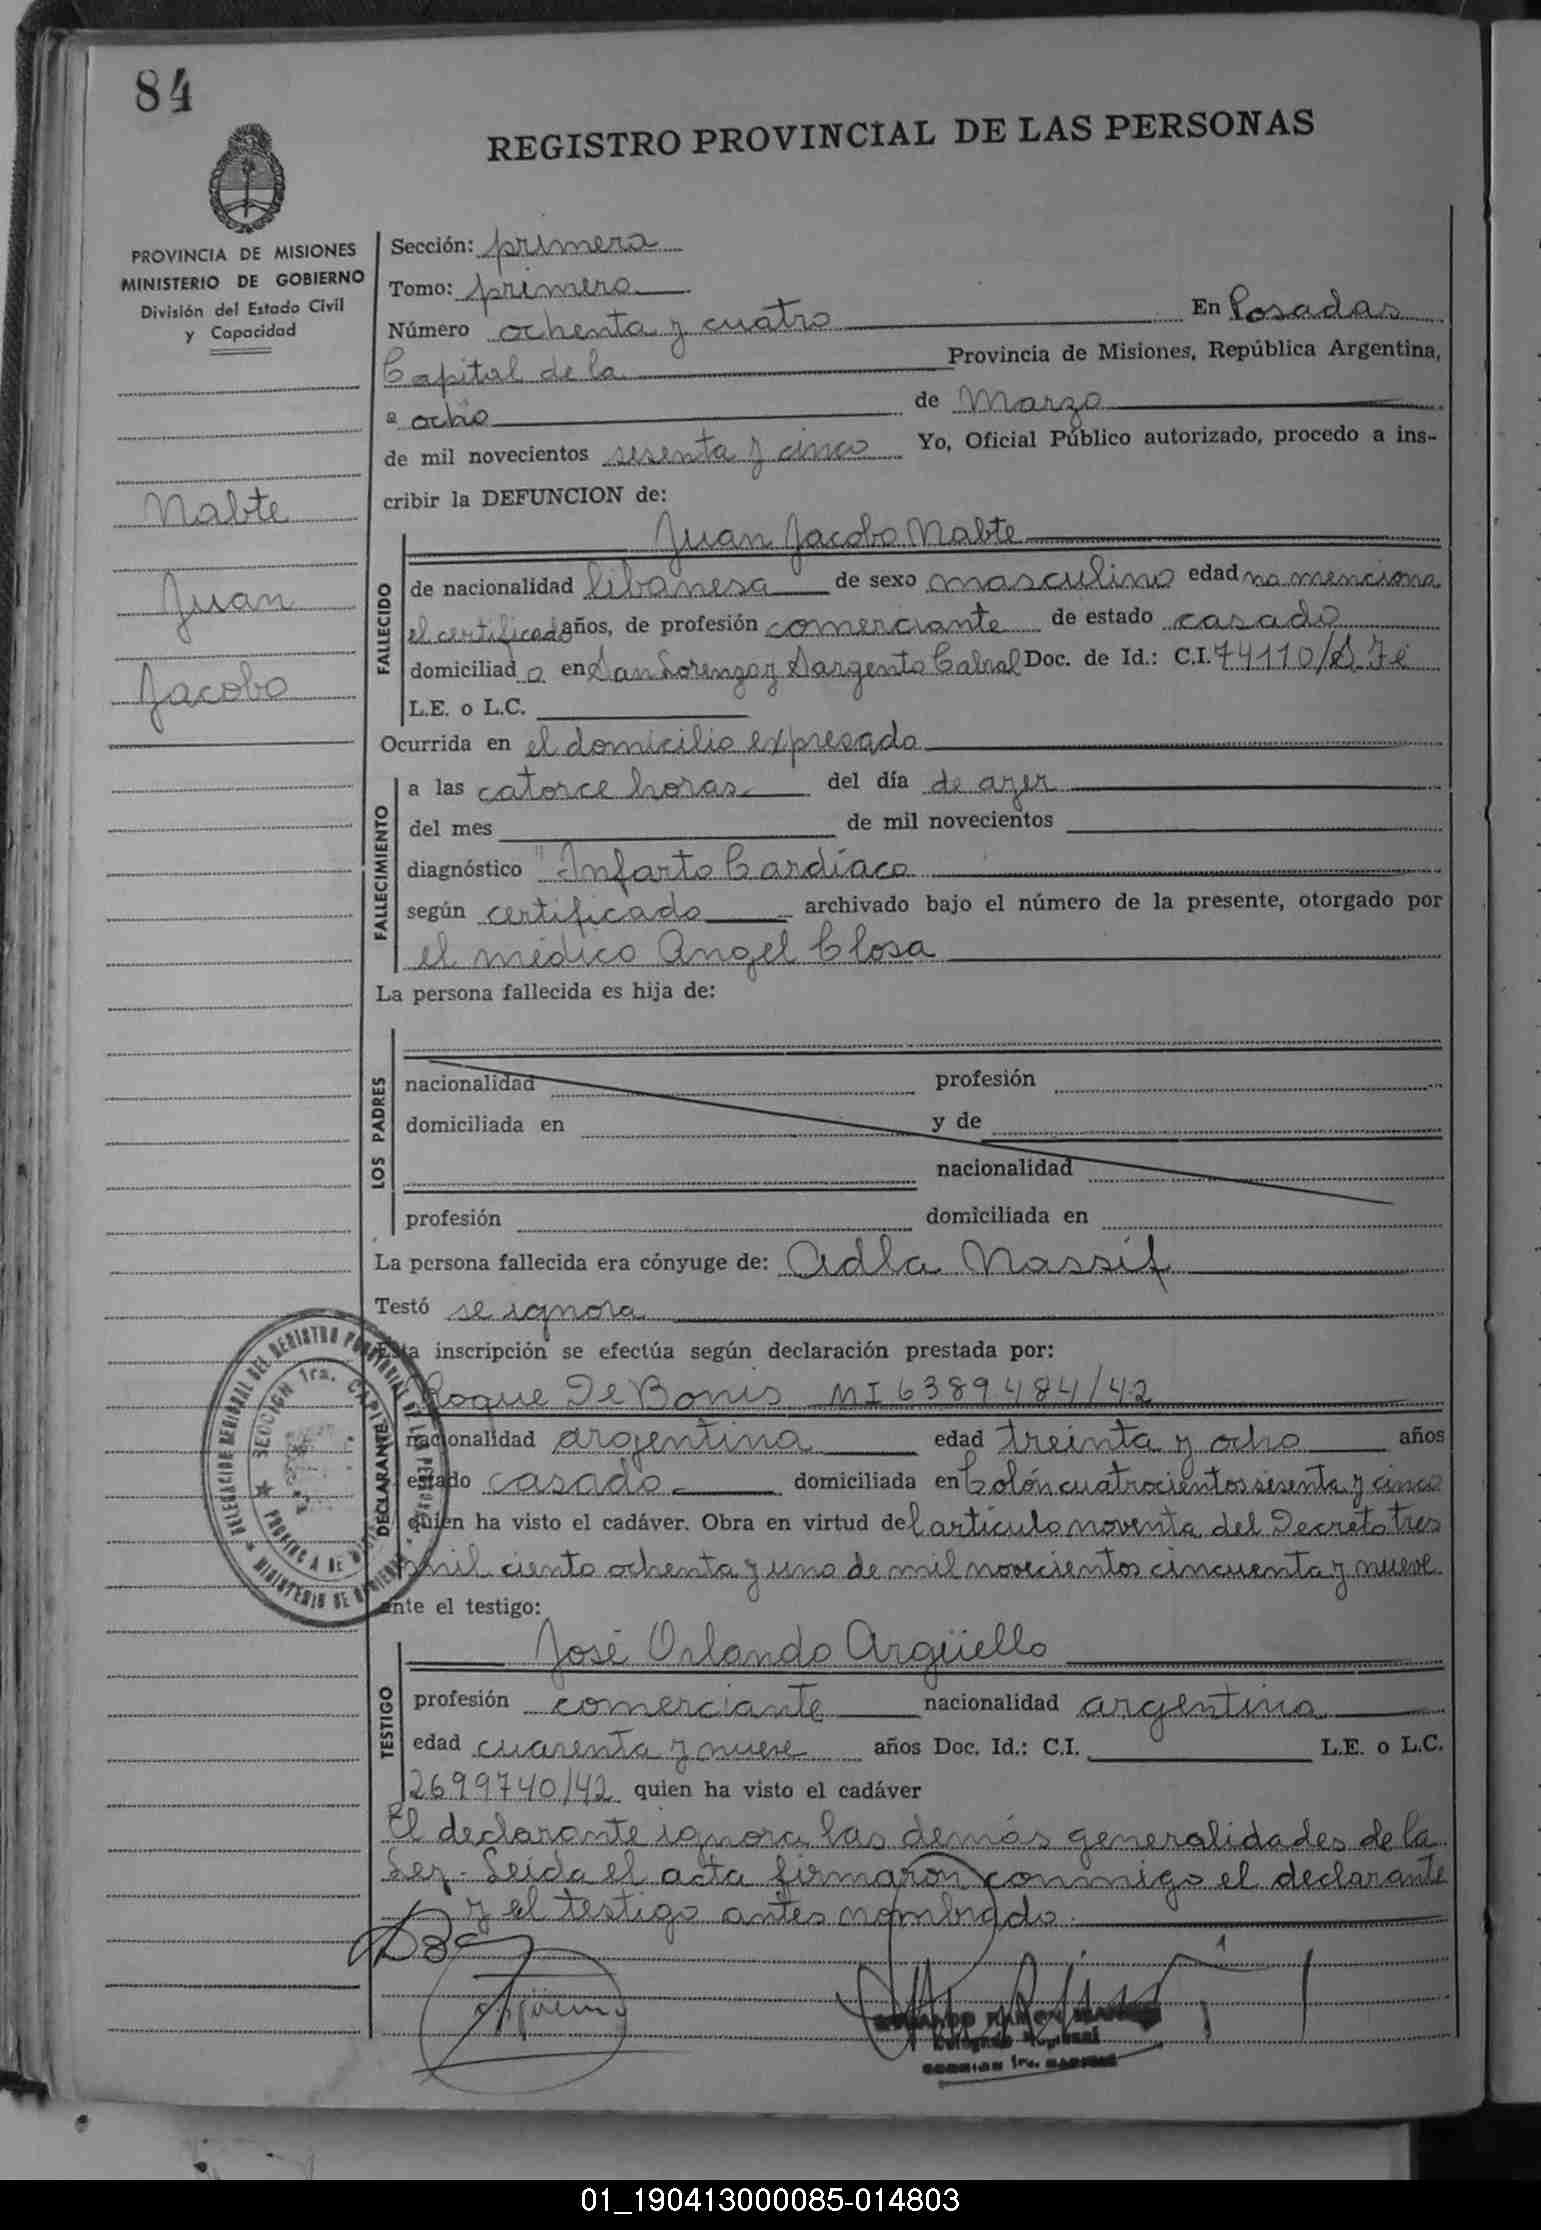 84
REGISTRO PROVINCIAL DE LAS PERSONAS
PROVINCIA DE MISIONES
MINISTERIO DE GOBIERNO
División del Estado Civil
y Capacidad
Nabte
Juan
Jacobo
Sección: primera
Tomo: primero
Número ochenta y cuatro En Posadas
Capital de la Provincia de Misiones, República Argentina,
a ocho de Marzo
de mil novecientos sesenta y cinco Yo, Oficial Público autorizado, procedo a ins-
cribir la DEFUNCION de:
Juan Jacobo Nabte
FALLECIDO
de nacionalidad libanesa de sexo masculino edad no menciona
el certificado años, de profesión comerciante de estado casado
domiciliad o en San Lorenzo y Sargento Cabral Doc. de Id.: C.I. 74110/S. Fé
L.E. o L.C.
Ocurrida en el domicilio expresado
FALLECIMIENTO
a las catorce horas del día de ayer
del mes de mil novecientos
diagnóstico "Infarto Cardíaco
según certificado archivado bajo el número de la presente, otorgado por
el médico Angel Closa
La persona fallecida es hija de:
LOS PADRES
nacionalidad profesión
domiciliada en y de
nacionalidad
profesión domiciliada en
La persona fallecida era cónyuge de: Adla Nassif
Testó se ignora
Esta inscripción se efectúa según declaración prestada por:
Roque De Bonis MI 6389484/42
DECLARANTE
nacionalidad argentina edad treinta y ocho años
estado casado domiciliada en Colón cuatrocientos sesenta y cinco
quien ha visto el cadáver. Obra en virtud del artículo noventa del Decreto tres
mil ciento ochenta y uno de mil novecientos cincuenta y nueve
ante el testigo:
DELEGACION REGIONAL DEL REGISTRO PROVINCIAL DE LAS PERSONAS
SECCION 1ra. CAPITAL
MINISTERIO DE GOBIERNO
José Orlando Argüello
TESTIGO
profesión comerciante nacionalidad argentina
edad cuarenta y nueve años Doc. Id.: C.I. L.E. o L.C.
2699740/42 quien ha visto el cadáver
El declarante ignora las demás generalidades de la
Ley. Leida el acta firmaron conmigo el declarante
y el testigo antes nombrado.
SECCION 1ra. CAPITAL
01_190413000085-014803